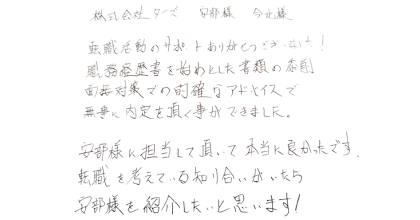 株式会社ターズ 安部様 今北様
転職活動のサポートありがとうございました!
職務経歴書を始めとした書類の添削
面接対策での的確なアドバイスで
無事に内定を頂く事ができました。
安部様に担当して頂いて本当に良かったです。
転職を考えている知り合いがいたら
安部様を紹介したいと思います!